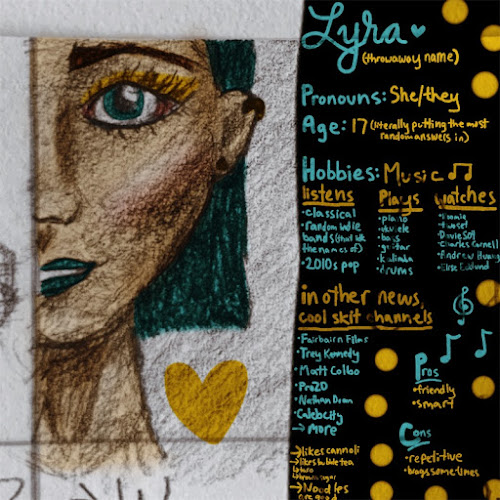 Lyra
(throwaway name)
Pronouns: She/they
Age: 17 (literally putting the most
random answers in)
Hobbies: Music
listens
•classical
random indie
bands (that
the names of)
•2010s pop
Plays
•piano
•ukulele
•bass
•guitar
•kalimba
•drums
watches
•twoset
•Davie504
•Charles Cornell
•Andrew Huang
in other news,
cool skit channels
•Fairbairn Films
•Trey Kennedy
•Matt Colbo
•ProZD
•Nathan Doan
•Calebcity
→more
→likes cannoli
→likes bubble tea
↳taro
↳brown sugar
Pros
•friendly
•smart
Cons
•repetitive
•brags sometimes